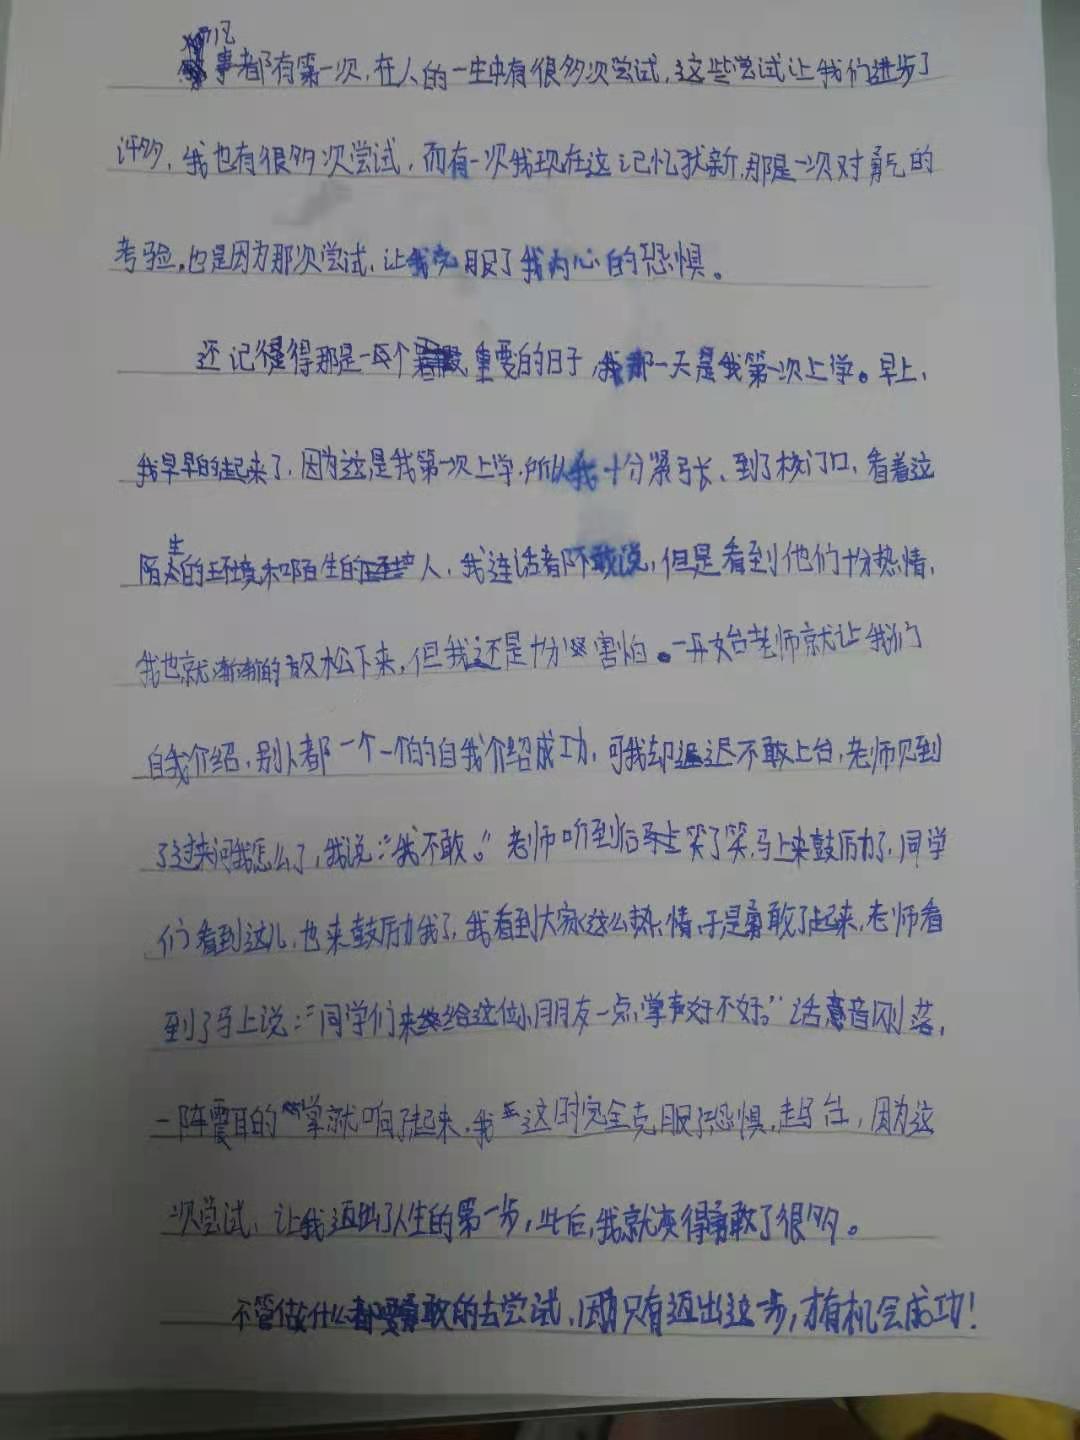 凡事都有第一次,在人的一生中有很多次尝试,这些尝试让我们进步了
许多,我也有很多次尝试,而有一次我现在这记忆犹新,那是一次对勇气的
考验,也是因为那次尝试,让我克服了我内心的恐惧。
还记得那是一个重要的日子,那一天是我第一次上学。早上,
我早早的起来了,因为这是我第一次上学,所以我十分紧张、到了校门口,看着这
陌生的环境和陌生的人,我连话都不敢说,但是看到他们十分热情,
我也就渐渐的放松下来,但我还是十分害怕。一开始老师就让我们
自我介绍,别人都一个一个的自我介绍成功,可我却迟迟不敢上台,老师见到
了过来问我怎么了,我说:“我不敢。”老师听到后笑了笑,马上来鼓励了,同学
们看到这儿,也来鼓励我了,我看到大家这么热情,于是勇敢了起来,老师看
到了马上说:“同学们来给这位小朋友一点掌声好不好。”话音刚落,
一阵震耳的掌就响了起来,我这时完全克服了恐惧,走上台,因为这
次尝试,让我迈出了人生的第一步,此后,我就变得勇敢了很多。
不管做什么都要勇敢的去尝试,因为只有迈出这一步,才有机会成功!